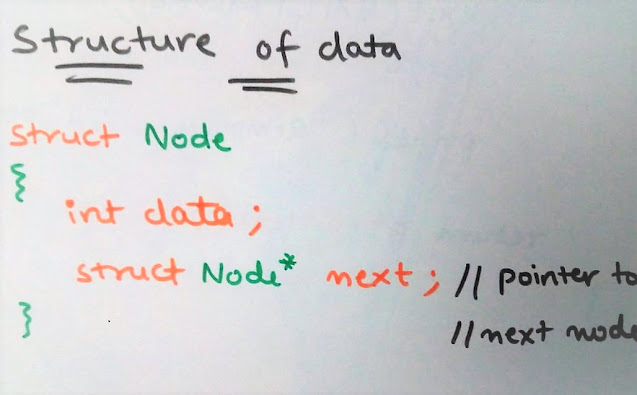 Structure of data
struct Node
{
int data;
struct Node* next; // pointer to
// next node
}